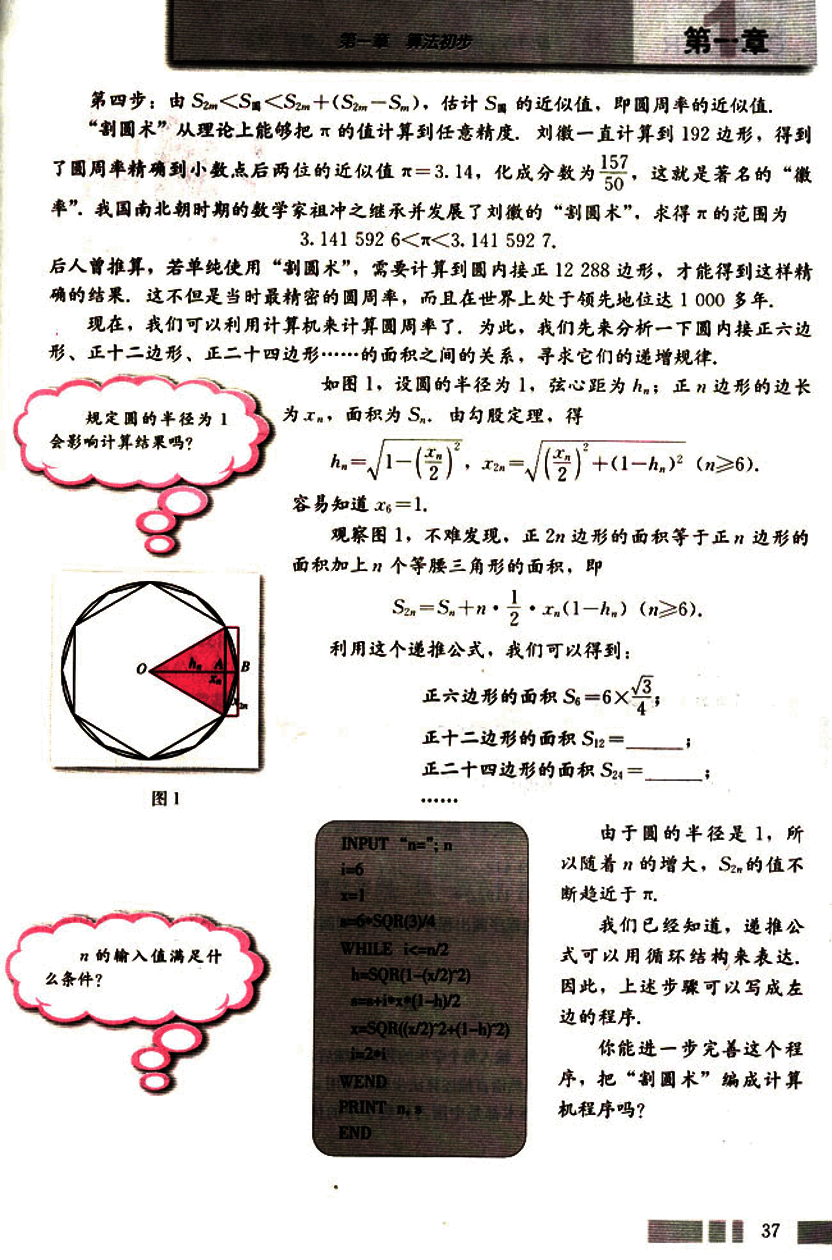 第一章 算法初步
第一章
1
第四步：由 S₂ₘ<S圆<S₂ₘ+(S₂ₘ−Sₘ)，估计 S圆 的近似值，即圆周率的近似值.
“割圆术”从理论上能够把 π 的值计算到任意精度. 刘徽一直计算到 192 边形，得到
了圆周率精确到小数点后两位的近似值 π=3.14，化成分数为 157/50，这就是著名的“徽
率”. 我国南北朝时期的数学家祖冲之继承并发展了刘徽的“割圆术”，求得 π 的范围为
3.141 592 6<π<3.141 592 7.
后人曾推算，若单纯使用“割圆术”，需要计算到圆内接正 12 288 边形，才能得到这样精
确的结果. 这不但是当时最精密的圆周率，而且在世界上处于领先地位达 1 000 多年.
现在，我们可以利用计算机来计算圆周率了. 为此，我们先来分析一下圆内接正六边
形、正十二边形、正二十四边形……的面积之间的关系，寻求它们的递增规律.
规定圆的半径为 1
会影响计算结果吗?
如图 1，设圆的半径为 1，弦心距为 hₙ；正 n 边形的边长
为 xₙ，面积为 Sₙ. 由勾股定理，得
hₙ=√(1−(xₙ/2)²)，x₂ₙ=√((xₙ/2)²+(1−hₙ)²) (n≥6).
容易知道 x₆=1.
观察图 1，不难发现，正 2n 边形的面积等于正 n 边形的
面积加上 n 个等腰三角形的面积，即
S₂ₙ=Sₙ+n·1/2·xₙ(1−hₙ) (n≥6).
利用这个递推公式，我们可以得到：
正六边形的面积 S₆=6×√3/4；
正十二边形的面积 S₁₂=______；
正二十四边形的面积 S₂₄=______；
……
O hₙ A B
xₙ
x₂ₙ
图 1
INPUT “n=”; n
i=6
x=1
s=6*SQR(3)/4
WHILE i<=n/2
h=SQR(1-(x/2)^2)
s=s+i*x*(1-h)/2
x=SQR((x/2)^2+(1-h)^2)
i=2*i
WEND
PRINT n, s
END
n 的输入值满足什
么条件?
由于圆的半径是 1，所
以随着 n 的增大，S₂ₙ的值不
断趋近于 π.
我们已经知道，递推公
式可以用循环结构来表达.
因此，上述步骤可以写成左
边的程序.
你能进一步完善这个程
序，把“割圆术”编成计算
机程序吗?
37